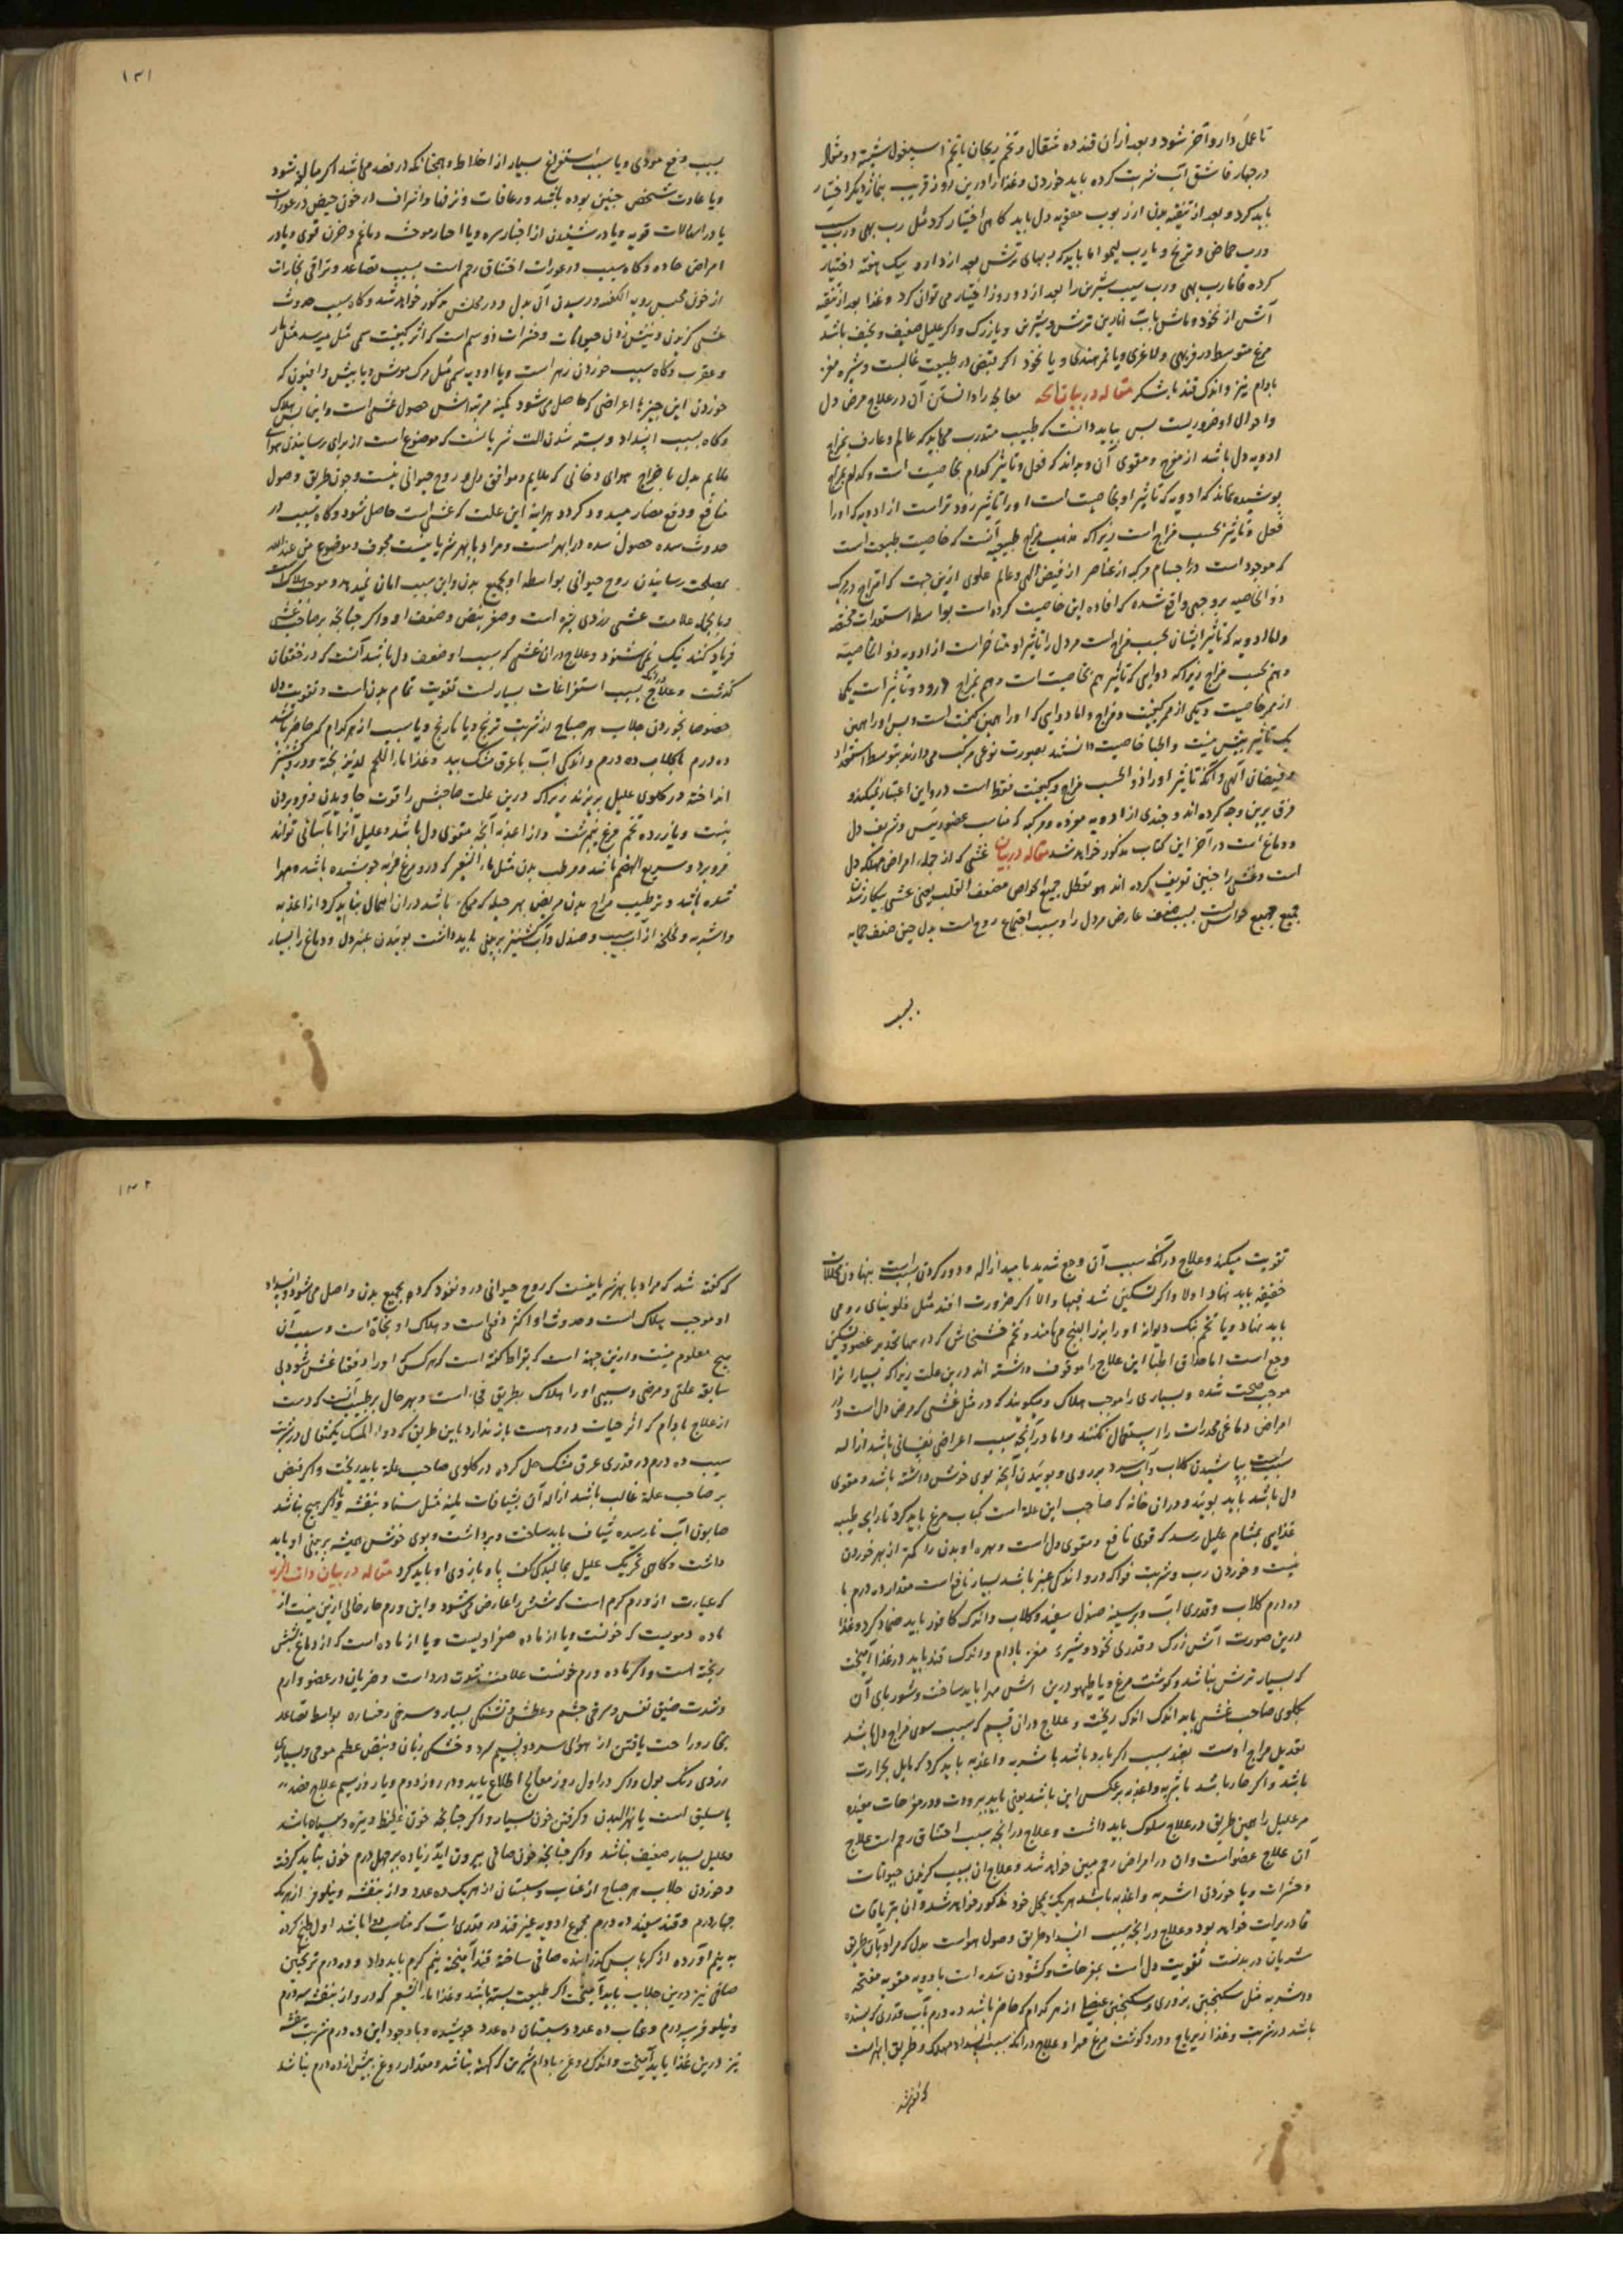 تا عمل دارو آخر شود و بعد ازان قند ده مثقال و تخم ریحان یا تخم اسپغول شیشه دو مثقال
در چهار قاشق آب شربت کرده باید خوردن و غذا را درین روز قریب بنماز دیگر اختیار
باید کرد و بعد از تنقیه بدن از ربوب مقویه دل باید کاهی اختیار کرد مثل رب بهی و رب سیب
و رب حماض و ترنج و یا رب لیمو اما باید که ربهای ترش بعد از دارو بیک هفته اختیار
کرده فاما رب بهی و رب سیب شیرین را بعد از دو روز اختیار می توان کرد و غذا بعد از تنقیه
آش از نخود و ماش با آب انارین ترش و شیرین و یا زرک و اکر علیل ضعیف و نحیف باشد
مرغ متوسط در فربهی و لاغری و یا تمر هندی و یا نخود اکر قبض در طبیعت غالبست و شیره مغز
بادام نیز و اندک قند یا شکر مقاله در بیان آنچه معالج را دانستن آن در علاج مرض دل
و احوال او ضروریست پس بباید دانست که طبیب متدرب می باید که عالم و عارف بمزاج
ادویه دل باشد از مفرح و مقوی آن و بداند که فعل و تاثیر کدام بخاصیت است و کدام بمزاج
پوشیده نماند که ادویه که تاثیر او بخاصیت است او را تاثیر زود تر است از ادویه که او را
فعل و تاثیر بحسب مزاج است زیرا که مذهب مزاج طبیعیه آنست که خاصیت طبیعت است
که موجود است در اجسام مرکبه از عناصر از فیض الهی و عالم علوی ازین جهت که امتزاج در مرکب
ذو الخاصیه بر وجهی واقع شده که افاده این خاصیت کرده است بواسطه استعدادات مختلفه
و اما ادویه که تاثیر ایشان بحسب مزاج است مر دل را تاثیر او متاخر است از ادویه ذو الخاصیه
و هم بحسب مزاج زیرا که دوایی که تاثیر هم بخاصیت است و هم بمزاج او را دو تاثیر است یکی
از ممر خاصیت و یکی از ممر کیفیت و مزاج و اما دوایی که او را همین کیفیت است و بس او را همین
یک تاثیر بیش نیست و اطبا خاصیت دانستند بصورت نوعی مرکب می دارند بتوسط استعداد
و فیضان الهی و آنکه تاثیر او را ذو الحسب مزاج و کیفیت فقط است درو این اعتبار نمیکند و
فرق برین وجه کرده اند و چندی از ادویه مفرده و مرکبه که مناسب عضو رئیس و شریف دل
و دماغ است در آخر این کتاب مذکور خواهد شد مقاله در بیان غشی که از جمله امراض مهلکه دل
است و غشی را چنین تعریف کرده اند هو تعطل جمیع الحواس لضعف القلب یعنی غشی بیکار شدن
جمیع حواس است بسبب ضعف عارض مر دل را و سبب اجتماع روح است بدل حین ضعف چنانچه
بسبب
۱۳۱
بسبب وجع موذی و یا بسبب استفراغ بسیار از اخلاط و همچنانکه در فصد می باشد اکر مبالغه شود
و یا عادت شخص چنین بوده باشد و رعافات و نزفها و انزاف در خون حیض در عورات
یا در اسهالات قویه و یا در شنیدن از اخبار سره و یا اخبار موحش و یا غم و حزن قوی و یا در
امراض حاده و کاه سبب در عورات اختناق رحم است بسبب تصاعد و تراقی بخارات
از خون محتبس رویه الکیفیه و رسیدن آن بدل و در محلش مذکور خواهد شد و کاه سبب حدوث
غشی کزیدن و نیش زدن حیوانات و حشرات ذو سم است که اثر کیفیت سمی مثل میرسد مثل مار
و عقرب و کاه سبب خوردن زهر است و یا ادویه سمی مثل مرک موش و یا بیش و افیون که
خوردن این چیزها اعراضی که حاصل می شود کمینه مرتبه اش حصول غشی است و اینها پس هلاک
و کاه بسبب انسداد و بسته شدن آلت شریانست که موضوع است از برای رسانیدن هوای
ملایم بدل یا خراج هوای دخانی که ملایم و موافق دل و روح حیوانی نیست و چون طریق وصول
منافع و دفع مضار مسدود کردد هرآینه این علت که غشی است حاصل شود و کاه سبب در
حدوث سده حصول سده در ابهر است و مراد بابهر شریانیست مجوف و موضوع من عند الله
بمصلحت رسانیدن روح حیوانی بواسطه او بجمیع بدن و این سبب امان نمیدهد و موجب هلاک است
و بالجمله علامت غشی زردی چهره است و صغر نبض و ضعف او و اکر چنانچه بر صاحب غشی
فریاد کنند نیک نمی شنود و علاج دران غشی که سبب او ضعف دل باشد آنست که در خفقان
کذشت و علاج دران که بسبب استفراغات بسیارست تقویت تمام بدن است و تقویت دل
خصوصا بخوردن جلاب هر صباح از شربت ترنج و یا نارنج و یا سیب از هر کدام که حاضر باشد
ده درم با کلاب ده درم و اندکی آب با عرق مشک بید و غذا ماء اللحم لذیذ پخته و درو کشنیز
انداخته در کلوی علیل بریزند زیرا که درین علت صاحبش را قوت جاویدن و فرو بردن
نیست و یا زرده تخم مرغ نیم برشت و از اغذیه آنچه مقوی دل باشد و علیل آنرا بآسانی تواند
فرو برد و سریع الهضم باشد و مرطب بدن مثل ماء الشعیر که درو مرغ فربه جوشیده باشد و مهرا
شده باشد و ترطیب مزاج بدن مریض بهر حیله که ممکن باشد دران اهمال نباید کرد از اغذیه
و اشربه و لخلخه از آب سیب و صندل و آب کشنیز بر بینی باید داشت بوییدن عنبر دل و دماغ را بسیار
تقویت میکند و علاج در آنکه سبب آن وجع شدید باشد ازاله و دور کردن سبب است بنهادن محللات
خفیفه باید نهاد اولا و اکر تسکین شد فبها و الا اکر ضرورت افتد مثل فلونیای رومی
باید نهاد و یا تخم بنک دیوانه او را بزر البنج می نامند و تخم خشخاش که در همها تخدیر عضو و تسکین
وجع است اما حذاق اطبا این علاج را موقوف داشته اند درین علت زیرا که بسیار انرا
موجب صحت شده و بسیاری را موجب هلاک و میکویند که در مثل غشی که مرض دل است و در
امراض دماغی مخدرات را استعمال نکنند و اما در آنچه سبب اعراض نفسانی باشد ازاله
سبب است بپاشیدن کلاب و آب سرد بر روی و بوییدن آنچه بوی خوش داشته باشد و مقوی
دل باشد باید بویید و دران خانه که صاحب این علة است کباب مرغ باید کرد تا رایحه طیبه
غذایی بمشام علیل رسد که قوی نافع و مقوی دل است و بهره او بدن را کمتر از بهر خوردن
نیست و خوردن رب و شربت فواکه درو اندکی عنبر باشد بسیار نافع است مقدار ده درم با
ده درم کلاب و قدری آب و بر سینه صندل سفید و کلاب و اندک کافور باید ضماد کرد و غذا
درین صورت آش زرک و قدری نخود و شیره مغز بادام و اندک قند باید در غذا آمیخت
که بسیار ترش نباشد و کوشت مرغ و یا طیهو درین آش مهرا باید ساخت و شوربای آن
بکلوی صاحب غشی باید اندک اندک ریخت و علاج دران قسم که سبب سوی مزاج دل باشد
تعدیل مزاج اوست بضد سبب اکر بارد باشد باشربه و اغذیه باید کرد که مایل بحرارت
باشد و اکر حار باشد باشربه و اغذیه بر عکس این باشد یعنی باید ببرودت و در مفرحات مفیده
مر علیل را همین طریق در علاج سلوک باید داشت و علاج در آنچه سبب اختناق رحم است علاج
آن علاج عضو است و ان در امراض رحم مبین خواهد شد و علاج ان بسبب کزیدن حیوانات
و حشرات و یا خوردن اشربه و اغذیه باشد هریک بمحل خود مذکور خواهد شد و ان بتریاقات
قادزهرات خواهد بود و علاج در آنچه بسبب انسداد طریق وصول هواست بدل که مراد بآن طریق
شریان وریدیست تقویت دل است بمفرحات و کشودن سده است بادویه مقویه مفتحه
و اشربه مثل سکنجبین بزوری و سکنجبین عنصلی از هر کدام که حاضر باشد ده درم بآب قدری که بسنده
باشد در شربت و غذا زیرباج و درو کوشت مرغ مهرا و علاج در آنکه بسبب انسداد مهلک و طریق ابهر است
که کفته شد
۱۳۲
که کفته شد که مراد بابهر شریانیست که روح حیوانی درو نفوذ کرده بجمیع بدن واصل می شود و انسداد
او موجب هلاک است و حدوث او اکثر دفعی است و هلاک او بفجاة است و سبب آن
هیچ معلوم نیست و ازین جهة است که بقراط کفته است که هر کس که او را دفعتا غشی شود بی
سابقه علتی و مرضی و سببی او را هلاک بطریق فجاة است و بهر حال بر طبیب آنست که دست
از علاج مادام که اثر حیات دروهست باز ندارد باین طریق که دواء المسک یکمثقال در شربت
سیب ده درم در قدری عرق مشک حل کرده در کلوی صاحب علة باید ریخت و اکر قبض
بر صاحب علة غالب باشد ازاله آن بشیافات ملینه مثل سناء و بنفشه و اکر هیچ نباشد
صابون آب نارسیده شیاف باید ساخت و برداشت و بوی خوش همیشه بر بینی او باید
داشت و کاهی تحریک علیل بمالیدن کف پا و بازوی او باید کرد مقاله در بیان ذات الریه
که عبارت از ورم کرم است که شش را عارض می شود و این ورم حار خالی ازین نیست از
ماده دمویست که خونست و یا از ماده صفراویست و یا از ماده است که از دماغ بشش
ریخته است و اکر ماده ورم خونست علامتش شدت درد است و ضربان در عضو وارم
و شدت ضیق نفس و سرخی چشم و عطش و تشنکی بسیار و سرخی رخساره بواسطه تصاعد
بخار و راحت یافتن از هوای سرد و نسیم سرد و خشکی زبان و نبض عظیم موجی و بسیاری
زردی رنک بول و اکر در اول روز معالج اطلاع یابد و در روز دوم و یا روز سیم علاج فصد
باسلیق است یا نهر البدن و کرفتن خون بسیار و اکر چنانچه خون غلیظ و تیره و سیاه باشد
و علیل بسیار ضعیف نباشد و اکر چنانچه خون صافی بیرون آید زیاده بر چهل درم خون نباید کرفت
و خوردن جلاب هر صباح از عناب و سپستان از هریک ده عدد و از بنفشه و نیلوفر از هریک
چهار درم و قند سفید ده درم مجموع ادویه غیر قند در بقدری آب که مناسب دوا باشد اول طبخ کرده
به نیم آورده از کرباس کذرانیده صافی ساخته قند آمیخته نیم کرم باید داد و ده درم ترنجبین
صافی نیز درین جلاب باید آمیخت اکر طبیعت بسته باشد و غذا ماء الشعیر که درو از بنفشه سه درم
و نیلوفر سه درم و عناب ده عدد و سپستان ده عدد جوشیده و با وجود این ده درم شربت بنفشه
نیز درین غذا باید آمیخت و اندک روغن بادام شیرین که کهنه نباشد و مقدار روغن بیش از ده درم نباشد